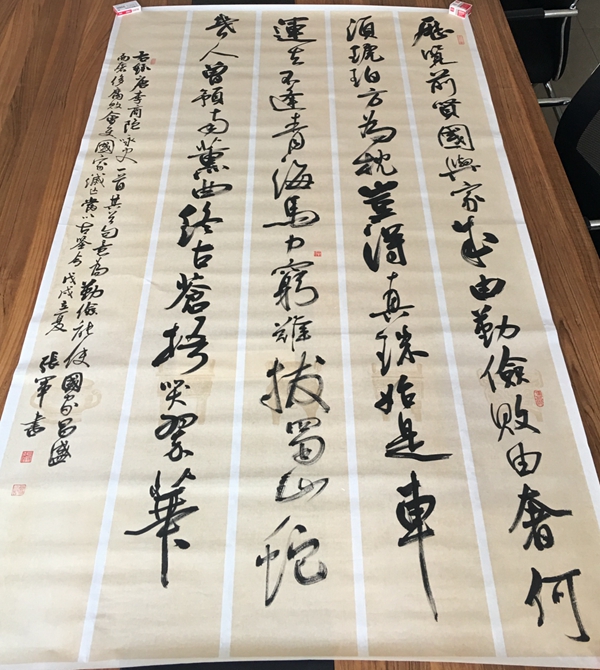 歷覽前賢國與家成由勤儉敗由奢何
須琥珀方為枕豈得真珠始是車
運去不逢青海馬力窮難拔蜀山蛇
幾人曾預南薰曲終古蒼梧哭翠華
右録唐李商隱詠史一首其首句意為勤儉能使國家昌盛
而奢侈腐敗會國家滅亡當以古鑒今戊戌立夏張軍書